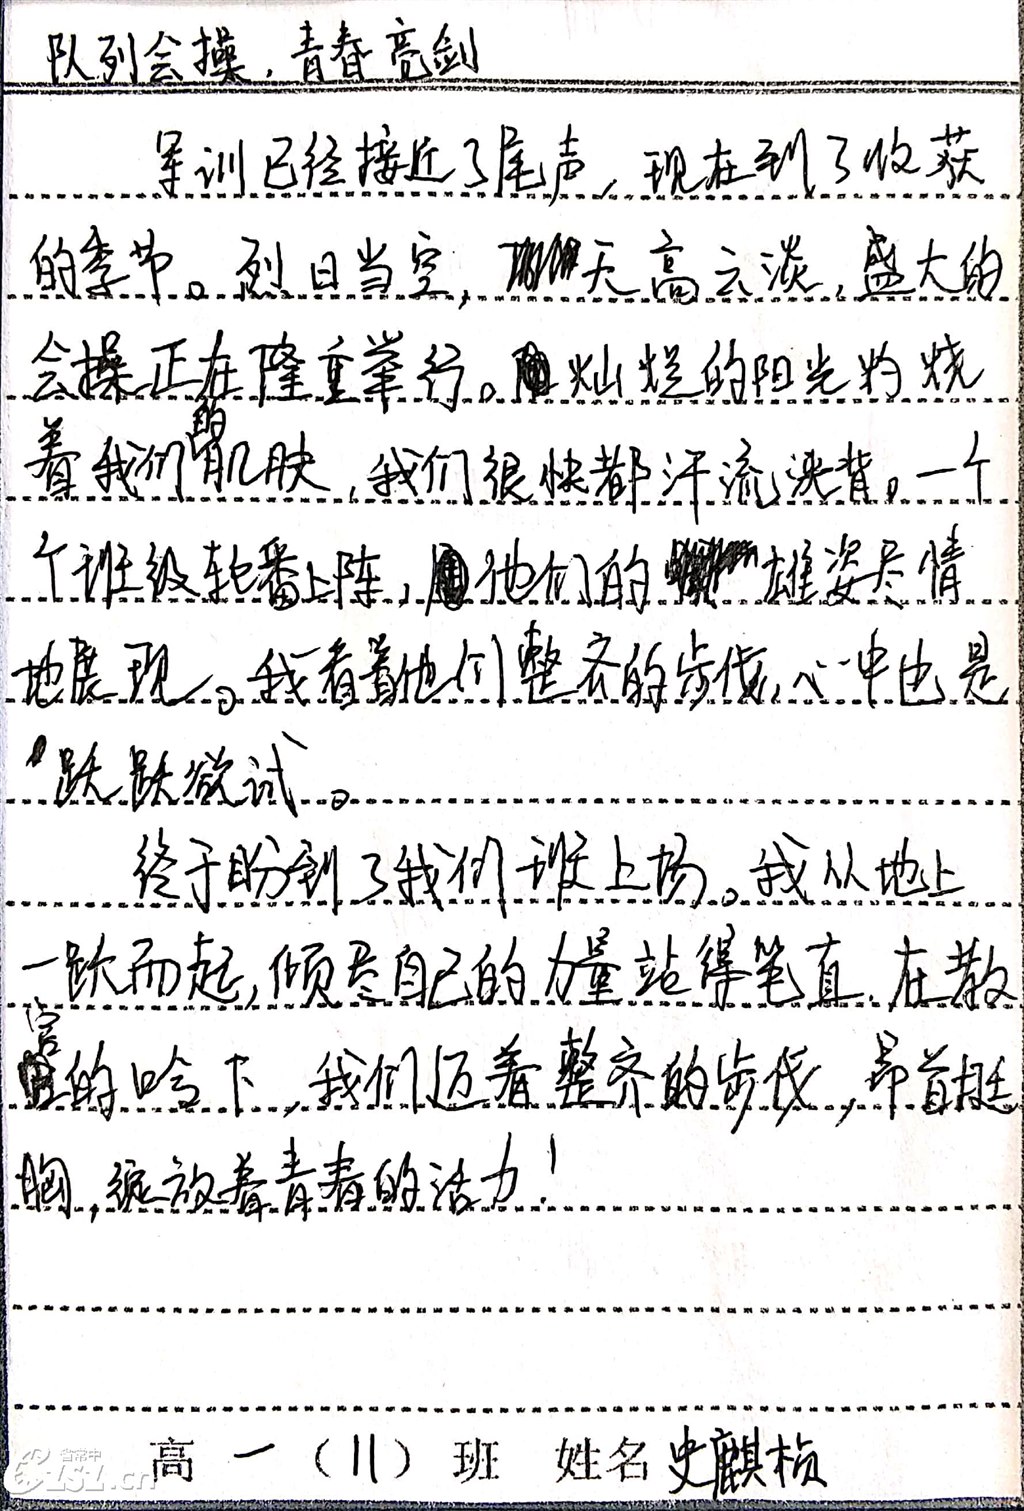 队列会操，青春亮剑
军训已经接近了尾声，现在到了收获
的季节。烈日当空，天高云淡，盛大的
会操正在隆重举行。灿烂的阳光灼烧
着我们的肌肤，我们很快都汗流浃背。一个
个班级轮番上阵，他们的雄姿尽情
地展现。我看着他们整齐的步伐，心中也是
跃跃欲试。
终于盼到了我们班上场。我从地上
一跃而起，倾尽自己的力量站得笔直，在教
官的哈下，我们迈着整齐的步伐，昂首挺
胸，绽放着青春的活力！
高一（11）班 姓名史麒桢
省常中